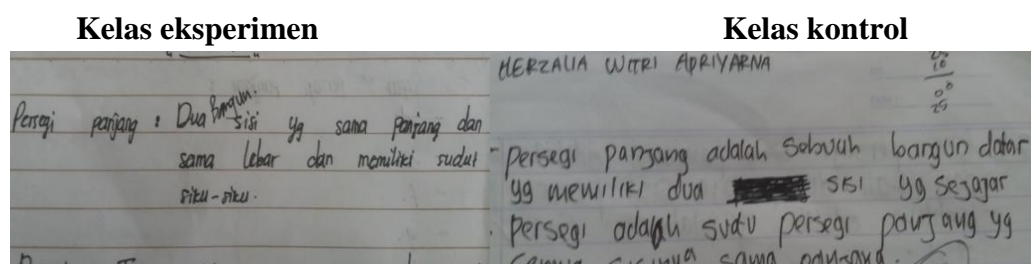 Kelas eksperimen
Kelas kontrol
Persegi panjang : Dua Bangun sisi yg sama panjang dan
sama lebar dan memiliki sudut
siku-siku.
HERZALIA WITRI APRIYARNA
- persegi panjang adalah sebuah bangun datar
yg memiliki dua sisi yg sejajar
. persegi adalah suatu persegi panjang yg
semua sisinya sama panjang.